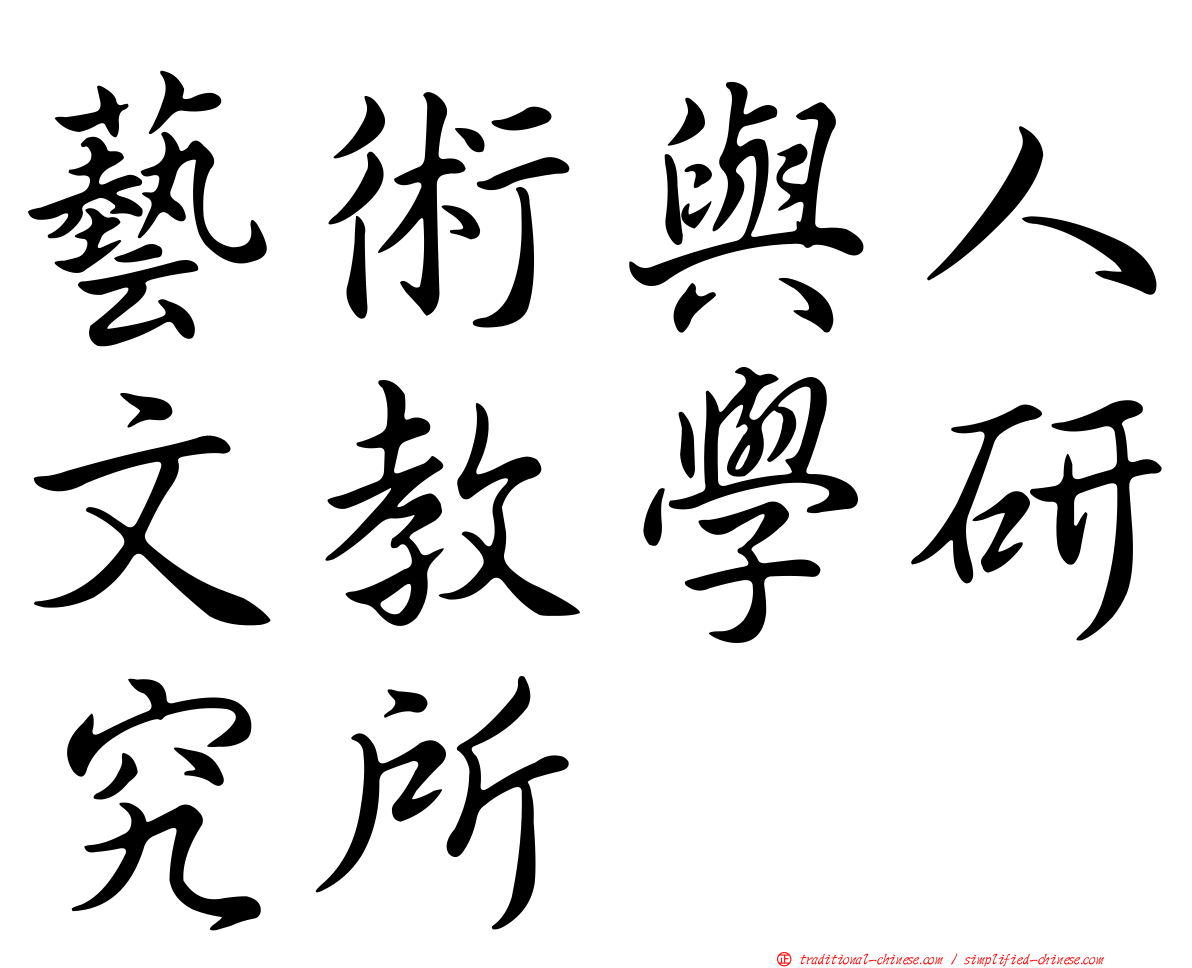 藝術與人
文教學研
究所
㊣ traditional-chinese.com / simplified-chinese.com